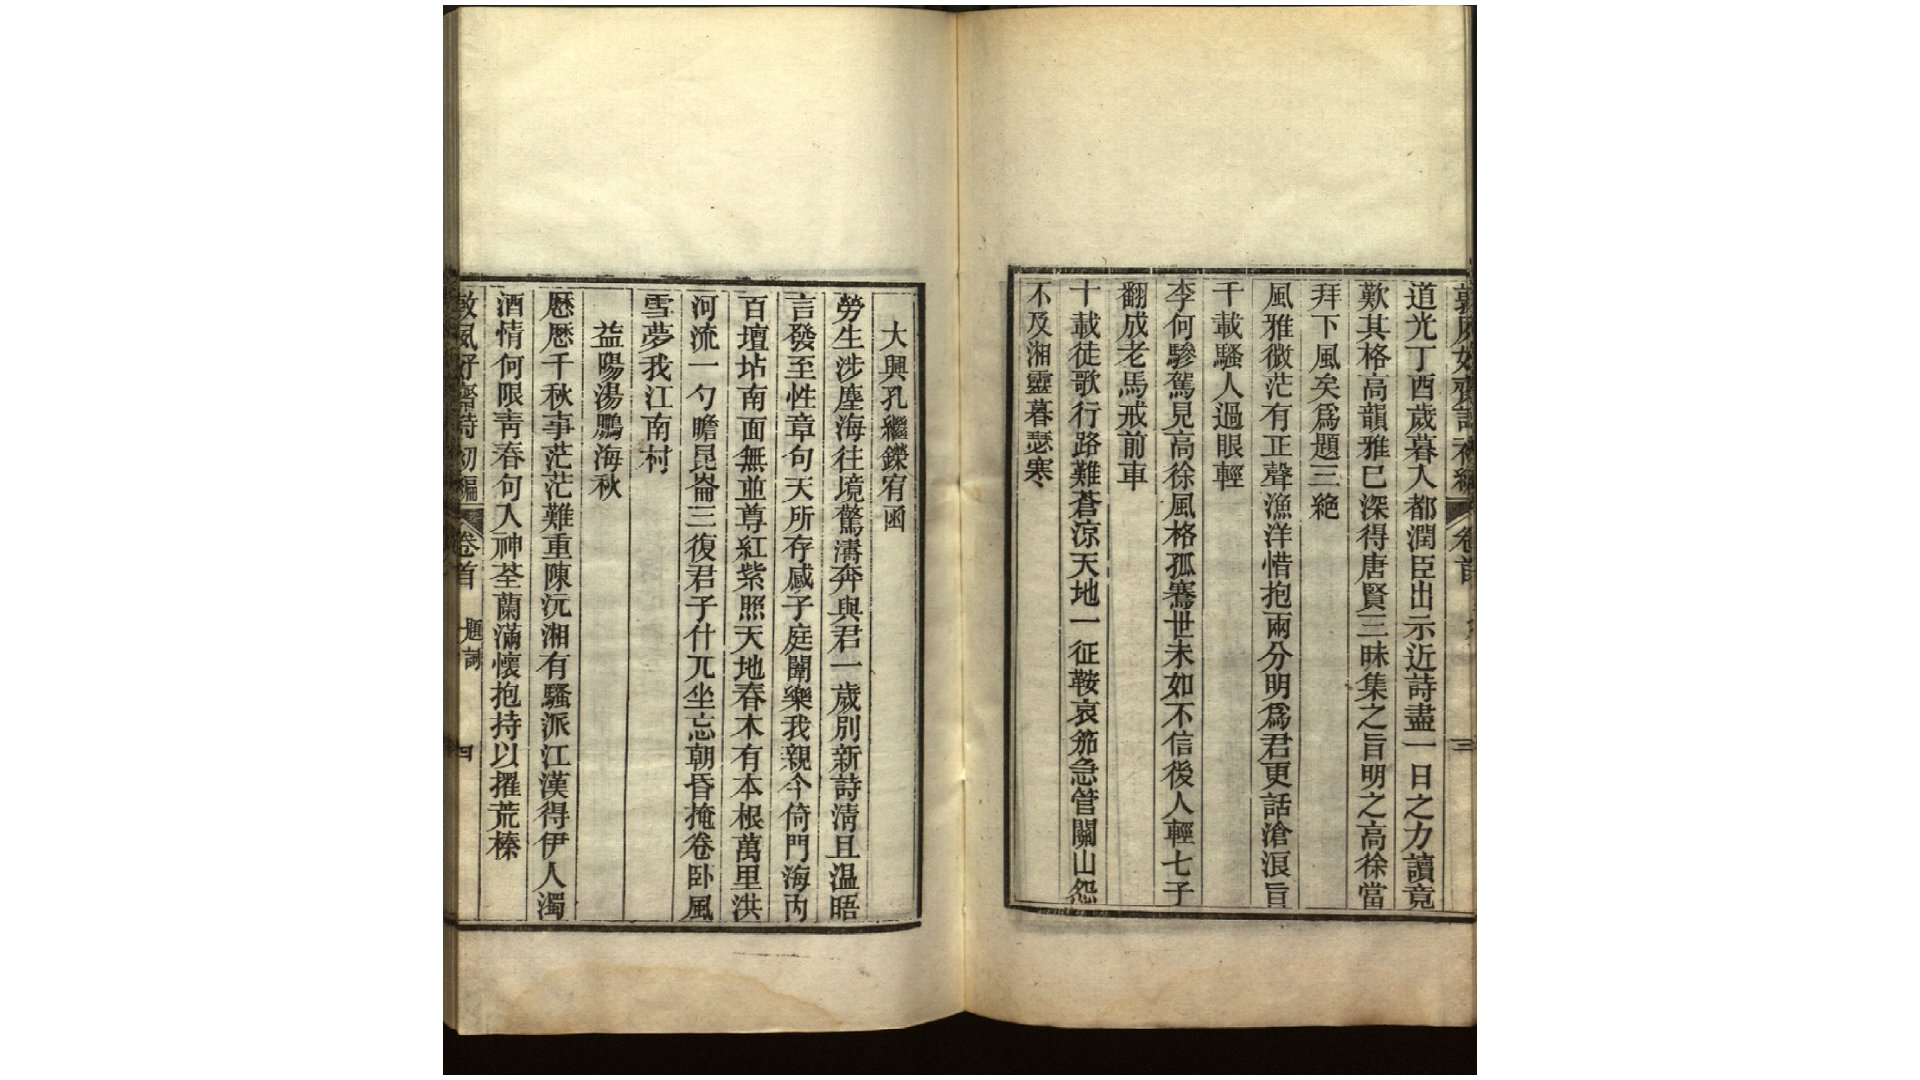 道光丁酉歲暮入都潤臣出示近詩盡一日之力讀竟
歎其格高韻雅已深得唐賢三昧集之旨明之高徐當
拜下風矣爲題三絶
風雅微茫有正聲漁洋惜抱兩分明爲君更話滄浪旨
千載騷人過眼輕
李何驂駕見高徐風格孤騫世未如不信後人輕七子
翻成老馬戒前車
十載徒歌行路難蒼涼天地一征鞍哀笳急管關山怨
不及湘靈暮瑟寒
大興孔繼鑅宥函
勞生涉塵海往境驚濤奔與君一歲別新詩淸且温晤
言發至性章句天所存感子庭闈樂我親今倚門海內
百壇坫南面無並尊紅紫照天地春木有本根萬里洪
河流一勺瞻昆崙三復君子什兀坐忘朝昏掩卷卧風
雪夢我江南村
益陽湯鵬海秋
歷歷千秋事茫茫難重陳沅湘有騷派江漢得伊人濁
酒情何限靑春句入神荃蘭滿懷抱持以擢荒榛
敦夙好齋詩初編 卷首 題詞 四